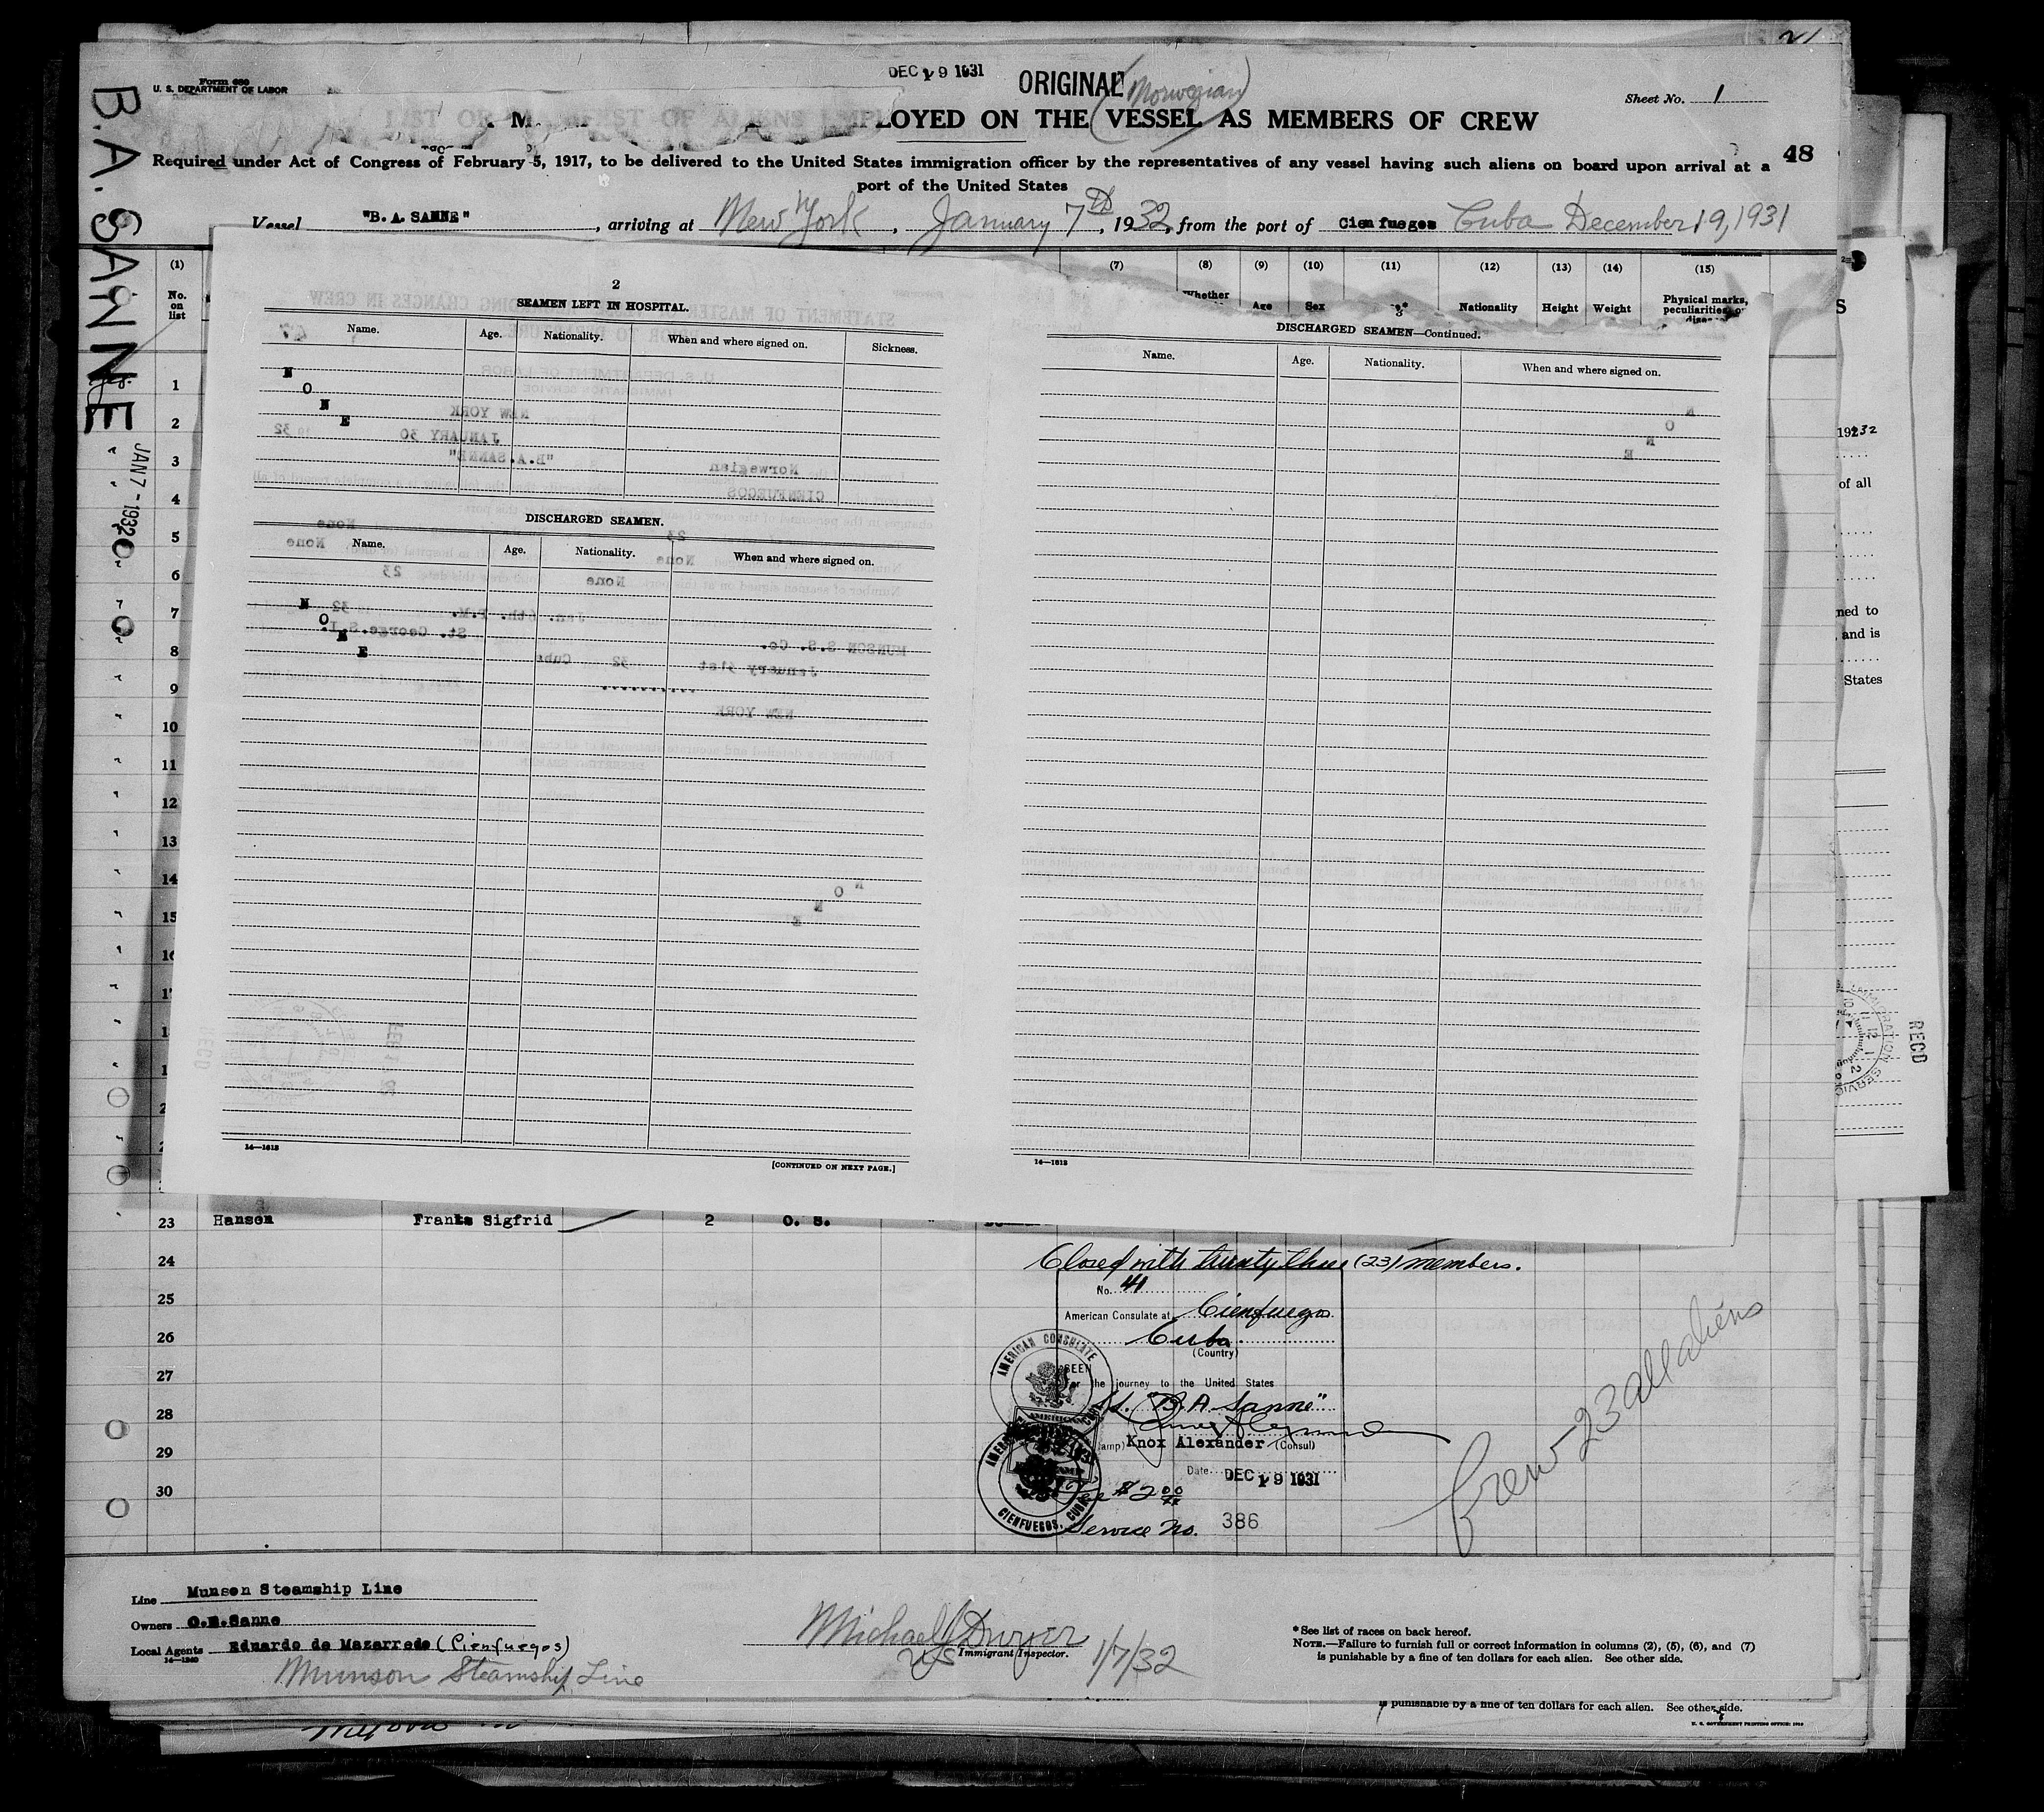 21
Form 680
U. S. DEPARTMENT OF LABOR
DEC 19 1931
ORIGINAL
(Norwegian)
Sheet No. 1
LIST OR MANIFEST OF ALIENS EMPLOYED ON THE VESSEL AS MEMBERS OF CREW
Required under Act of Congress of February 5, 1917, to be delivered to the United States immigration officer by the representatives of any vessel having such aliens on board upon arrival at a
port of the United States
48
Vessel "B. A. SANNE", arriving at New York, January 7th, 1932, from the port of Cienfuegos Cuba December 19, 1931
B.A. SANNE
JAN 7 - 1932
(1) (7) (8) (9) (10) (11) (12) (13) (14) (15)
No. on list
Whether Age Sex Nationality Height Weight Physical marks, peculiarities, or
2
SEAMEN LEFT IN HOSPITAL.
Name. Age. Nationality. When and where signed on. Sickness.
N
O
N
E
DISCHARGED SEAMEN.
Name. Age. Nationality. When and where signed on.
N
O
N
E
14—1613
[CONTINUED ON NEXT PAGE.]
DISCHARGED SEAMEN—Continued.
Name. Age. Nationality. When and where signed on.
14—1613
1
2
3
4
5
6
7
8
9
10
11
12
13
14
15
23 Hansen Frants Sigfrid 2 O. S. "
24
25
26
27
28
29
30
Closed with twenty three (23) members.
No. 41
American Consulate at Cienfuegos
Cuba.
(Country)
SEEN
For the journey to the United States
"B. A. Sanne"
Knox Alexander (Consul)
Date DEC 19 1931
Fee $2.00
Service No. 386
AMERICAN CONSULATE
CIENFUEGOS, CUBA
Crew 23 all aliens
Line Munson Steamship Line
Owners O.E.Sanne
Local Agents Eduardo de Mazarredo (Cienfuegos)
14—1240
Munson Steamship Line
Michael J Dwyer
US Immigrant Inspector. 1/7/32
* See list of races on back hereof.
NOTE.—Failure to furnish full or correct information in columns (2), (5), (6), and (7)
is punishable by a fine of ten dollars for each alien. See other side.
is punishable by a fine of ten dollars for each alien. See other side.
U. S. GOVERNMENT PRINTING OFFICE
S
1932
of all
ned to
, and is
States
IMMIGRATION SERVICE
RECD